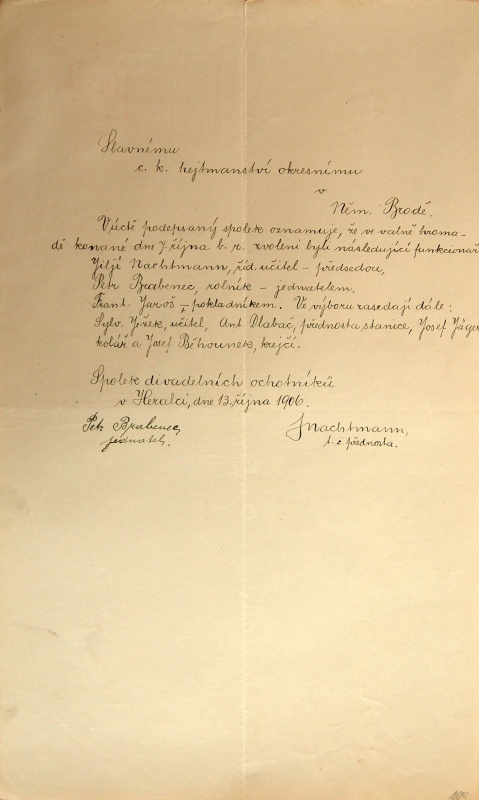 Slavnému
c. k. hejtmanství okresnímu
v
Něm. Brodě.
V úctě podepsaný spolek oznamuje, že ve valné hroma-
dě konané dne 7. října b. r. zvoleni byli následující funkcionáři
Jiljí Nachtmann, říd. učitel - předsedou,
Petr Brabenec, rolník - jednatelem,
Frant. Jaroš - pokladníkem. Ve výboru zasedají dále:
Sylv. Ježek, učitel, Ant. Dlabač, přednosta stanice, Josef Jäger
kolář a Josef Běhounek, krejčí.
Spolek divadelních ochotníků
v Heralci, dne 13. října 1906.
Petr Brabenec, JNachtmann,
jednatel. t. č. přednosta.
165